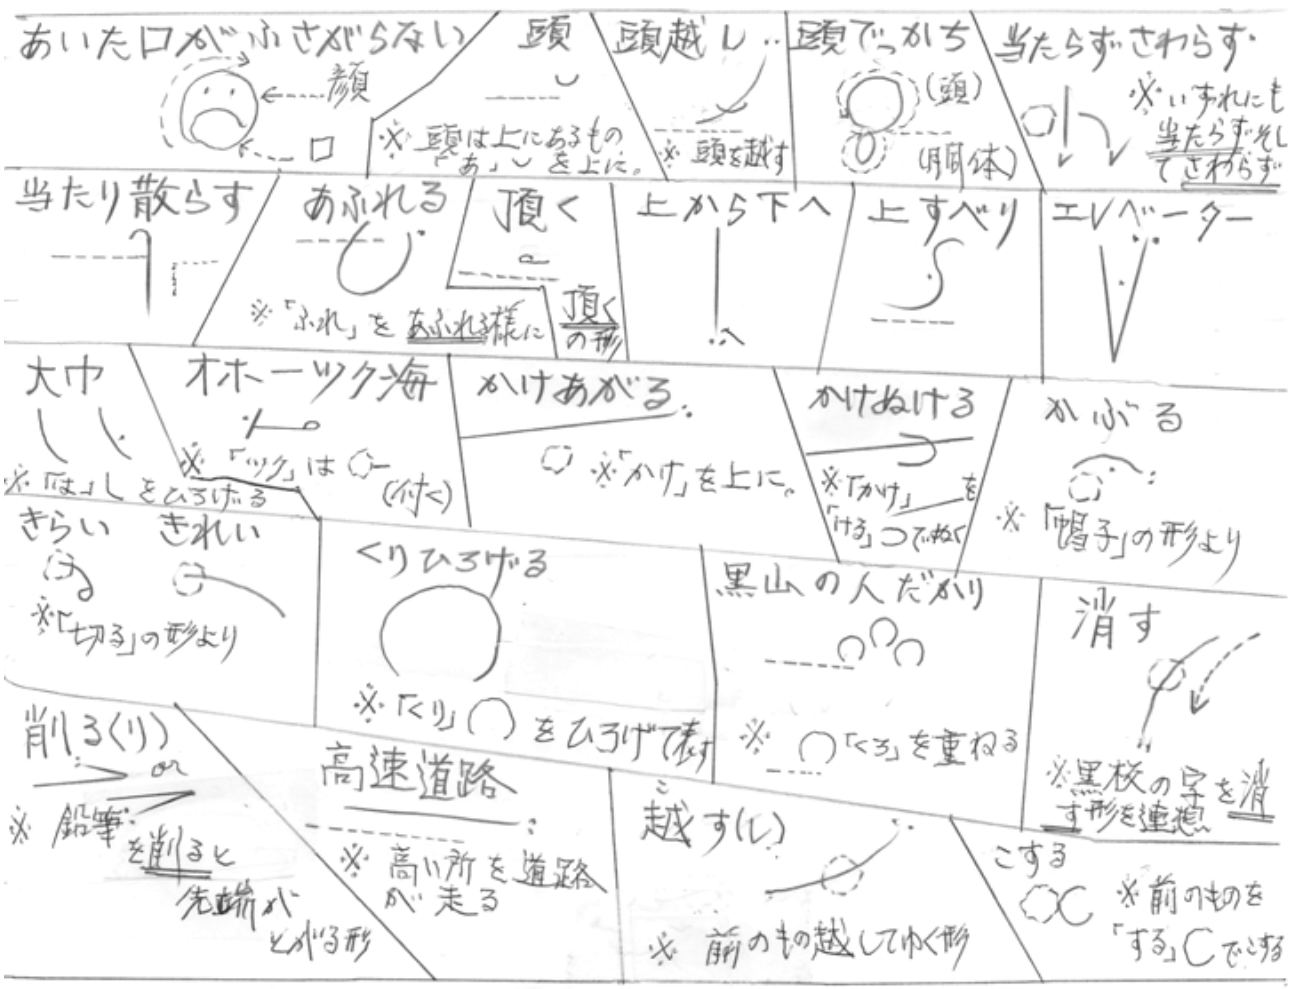 あいた口がふさがらない
顔
口
頭
※ 頭は上にあるもの
「あ」を上に。
頭越し
※ 頭を越す
頭でっかち
(頭)
(胴体)
当たらずさわらず
※いずれにも
当たらずそし
てさわらず
当たり散らす
あふれる
※「ふれ」を あふれる様に
頂く
頂く
の形
上から下へ
上すべり
エレベーター
大巾
※「は」しをひろげる
オホーツク海
※「ツク」は
(付く)
かけあがる
※「かけ」を上に。
かけぬける
※「かけ」を
「ける」つでぬく
かぶる
※「帽子」の形より
きらい きれい
※「切る」の形より
くりひろげる
※「くり」をひろげて表す
黒山の人だかり
※「くろ」を重ねる
消す
※黒板の字を消
す形を連想
削る(り)
or
※ 鉛筆
を削ると
先端が
とがる形
高速道路
※ 高い所を道路
が走る
越す(し)
※ 前のもの越してゆく形
こする
※前のものを
「する」Cでこする